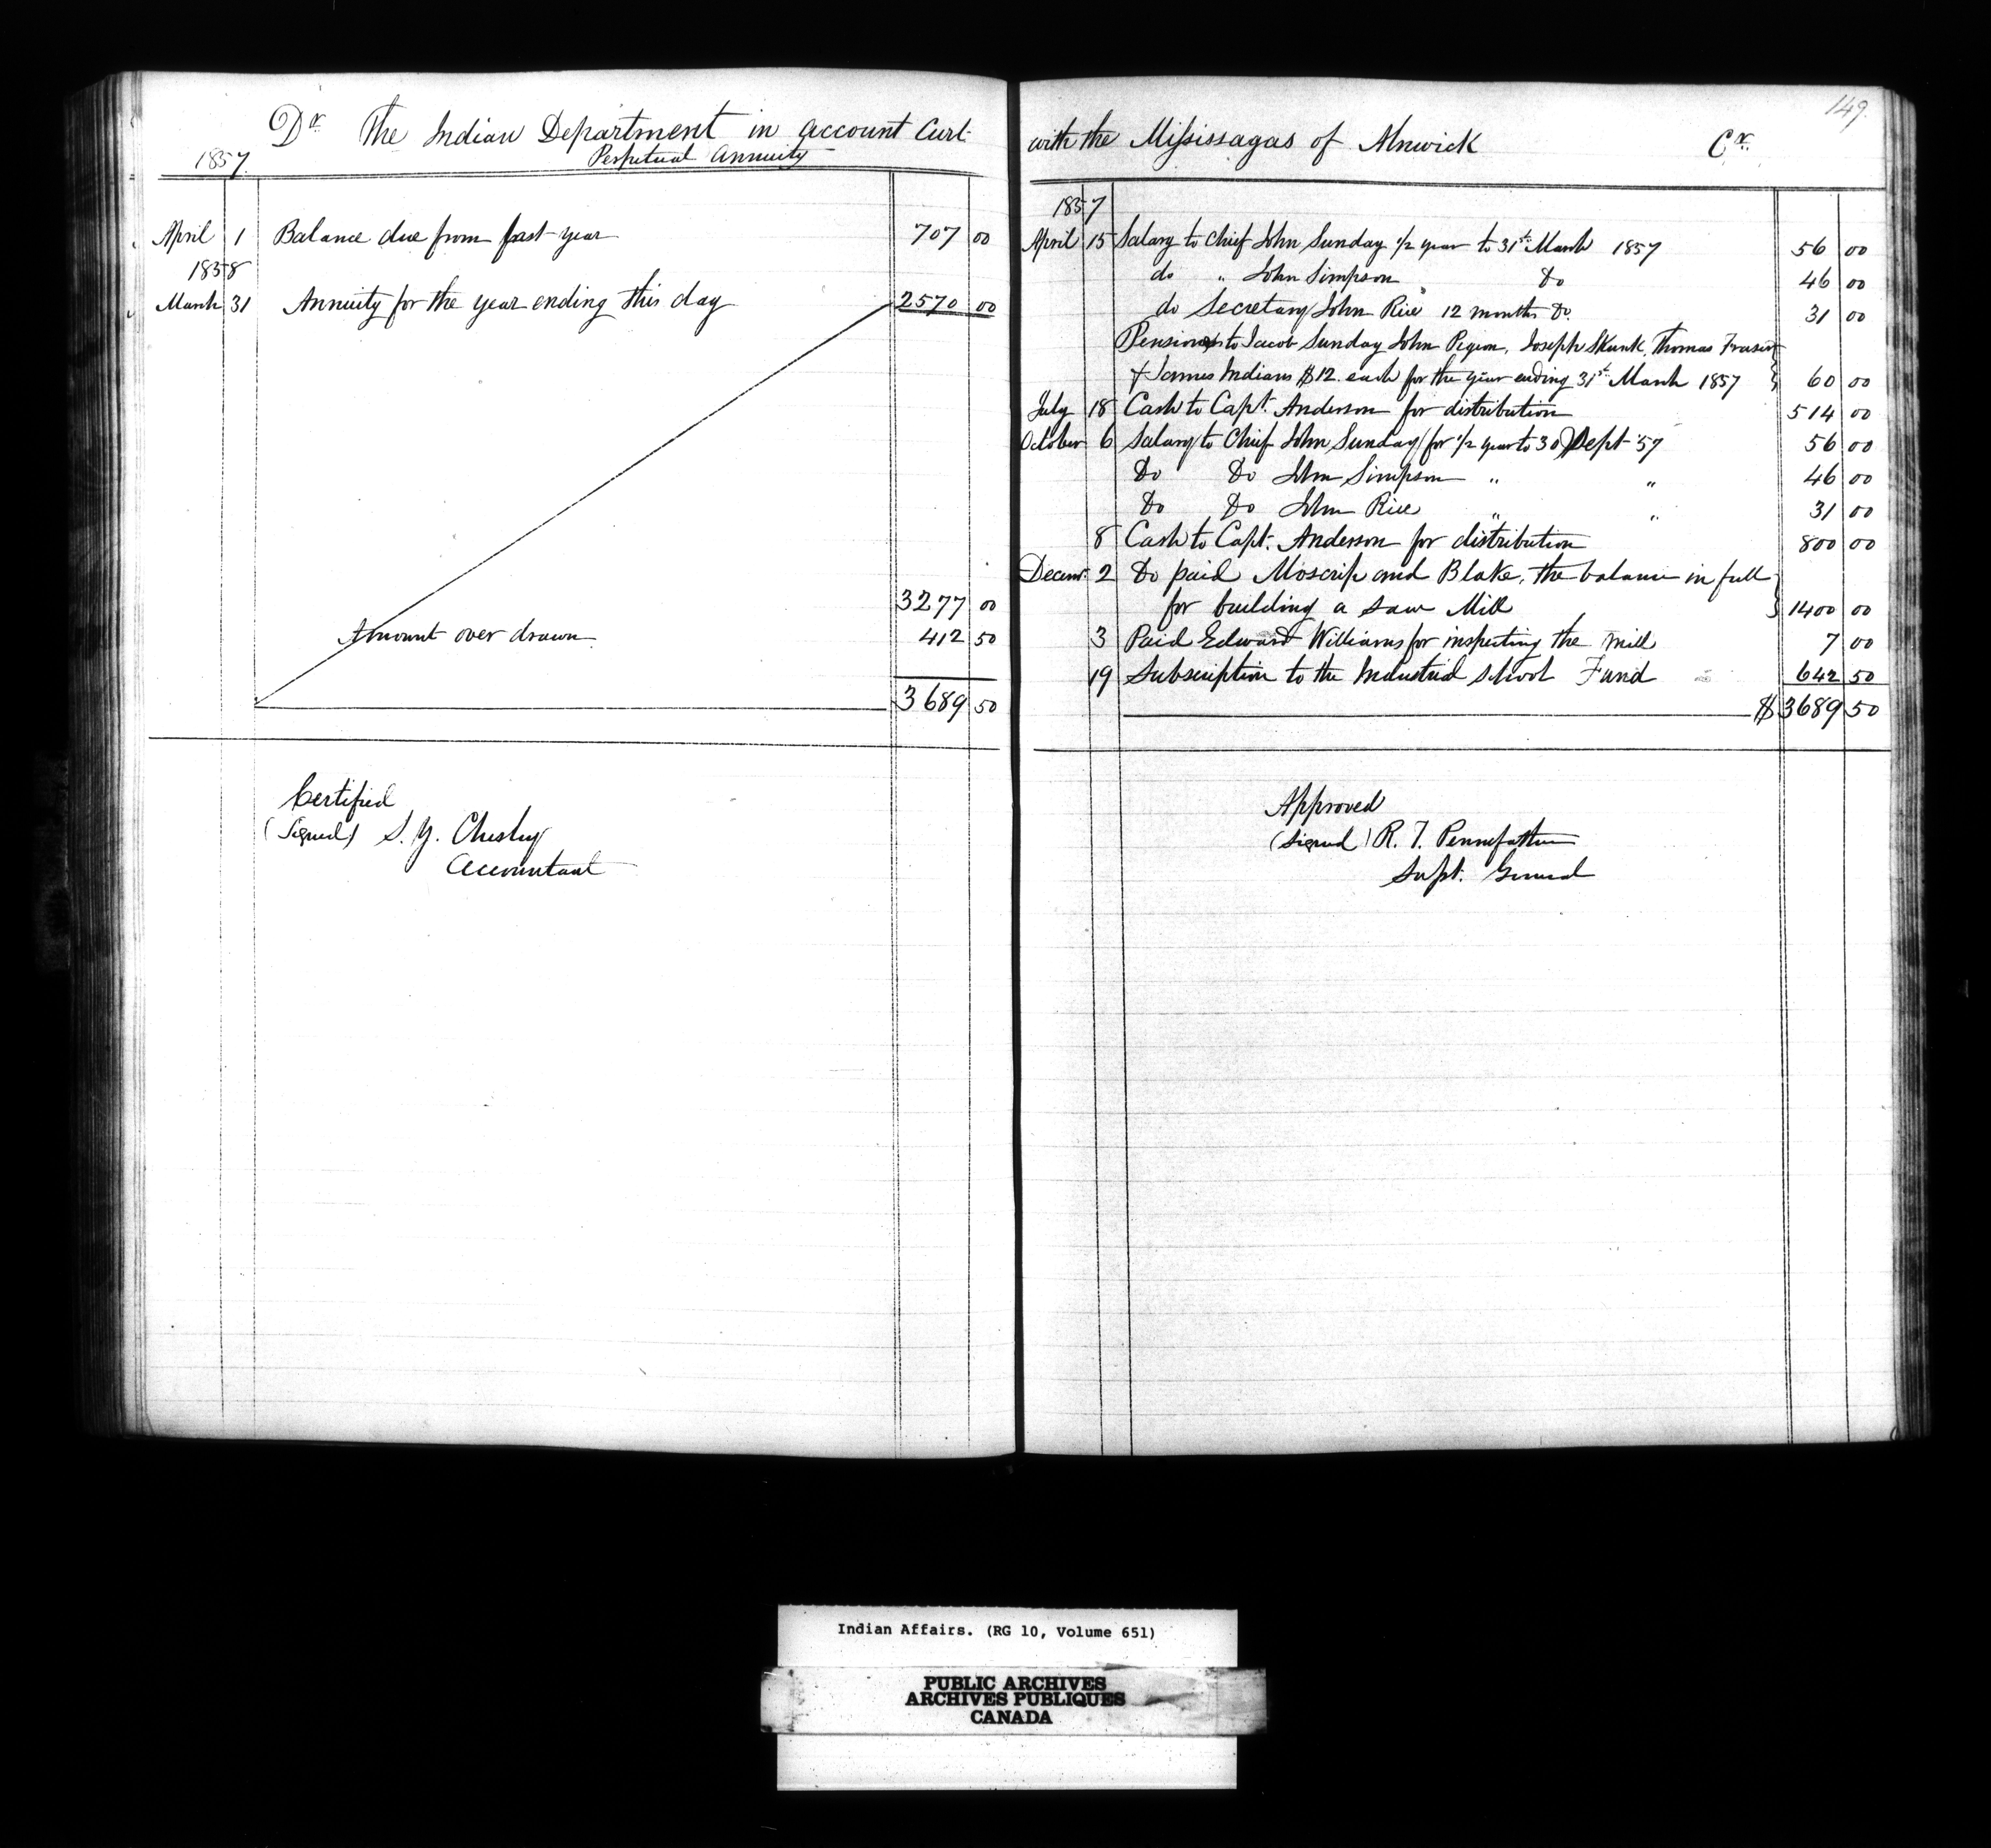 149.
Dr. The Indian Department in account Curt.
Perpetual Annuity
1857.
April 1 Balance due from past year 707 00
1858
March 31 Annuity for the year ending this day 2570 00
3277 00
Amount over drawn 412 50
3689 50
Certified
(Signed) S. Y. Chesley
Accountant
with the Missisagas of Alnwick Cr.
1857
April 15 Salary to Chief John Sunday 1/2 year to 31st March 1857 56 00
do " John Simpson Do 46 00
do Secretary John Rice 12 months Do. 31 00
Pensions to Jacob Sunday John Pigeon, Joseph Skunk, Thomas Fraser
& James Indians $12. each for the year ending 31st March 1857 60 00
July 18 Cash to Capt. Anderson for distribution 514 00
October 6 Salary to Chief John Sunday (for 1/2 year to 30) Sept '57 56 00
Do Do John Simpson " " 46 00
Do Do John Rice " " 31 00
8 Cash to Capt. Anderson for distribution 800 00
Decemr. 2 Do paid Moscrip and Blake, the balance in full
for building a saw Mill 1400 00
3 Paid Edward Williams for inspecting the mill 7 00
19 Subscription to the Industrial School Fund 642 50
$ 3689 50
Approved
(Signed) R. T. Pennefather
Supt. General
Indian Affairs. (RG 10, Volume 651)
PUBLIC ARCHIVES
ARCHIVES PUBLIQUES
CANADA